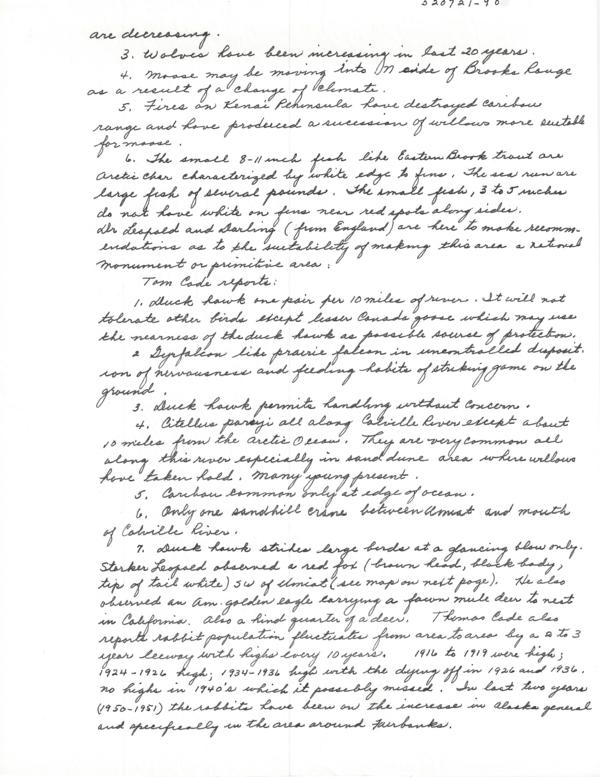 520721-90
are decreasing.
3. Wolves have been increasing in last 20 years.
4. Moose may be moving into N side of Brooks Range
as a result of a change of climate.
5. Fires on Kenai Peninsula have destroyed caribou
range and have produced a sucession of willows more suitable
for moose.
6. The small 8-11 inch fish like Eastern Brook trout are
Arctic char characterized by white edge to fins. The sea run are
large fish of several pounds. The small fish, 3 to 5 inches
do not have white on fins near red spots along sides.
Dr Leopold and Darling (from England) are here to make recomm-
endations as to the suitability of making this area a national
monument or primitive area.
Tom Cade reports:
1. Duck hawk one pair per 10 miles of river. It will not
tolerate other birds except lesser Canada goose which may use
the nearness of the duck hawk as possible source of protection.
2 Gyrfalcon like prairie falcon in uncontrolled disposit-
ion of nervousness and feeding habits of striking game on the
ground.
3. Duck hawk permits handling without concern.
4. Citellus parryi all along Colville River except about
10 miles from the Arctic Ocean. They are very common all
along this river especially in sand dune area where willows
have taken hold. Many young present.
5. Caribou common only at edge of ocean.
6. Only one sandhill crane between Umiat and mouth
of Colville River.
7. Duck hawk strikes large birds at a glancing blow only.
Starker Leopold observed a red fox (brown head, black body,
tip of tail white) SW of Umiat (see map on next page). He also
observed an Am. golden eagle carrying a fawn mule deer to nest
in California. Also a hind quarter of a deer. Thomas Cade also
reports rabbit population fluctuates from area to area by a 2 to 3
year leeway with highs every 10 years. 1916 to 1919 were high;
1924-1926 high; 1934-1936 high with the dying off in 1926 and 1936.
no highs in 1940's which it possibly missed. In last two years
(1950-1951) the rabbits have been on the increase in Alaska general
and specifically in the area around Fairbanks.